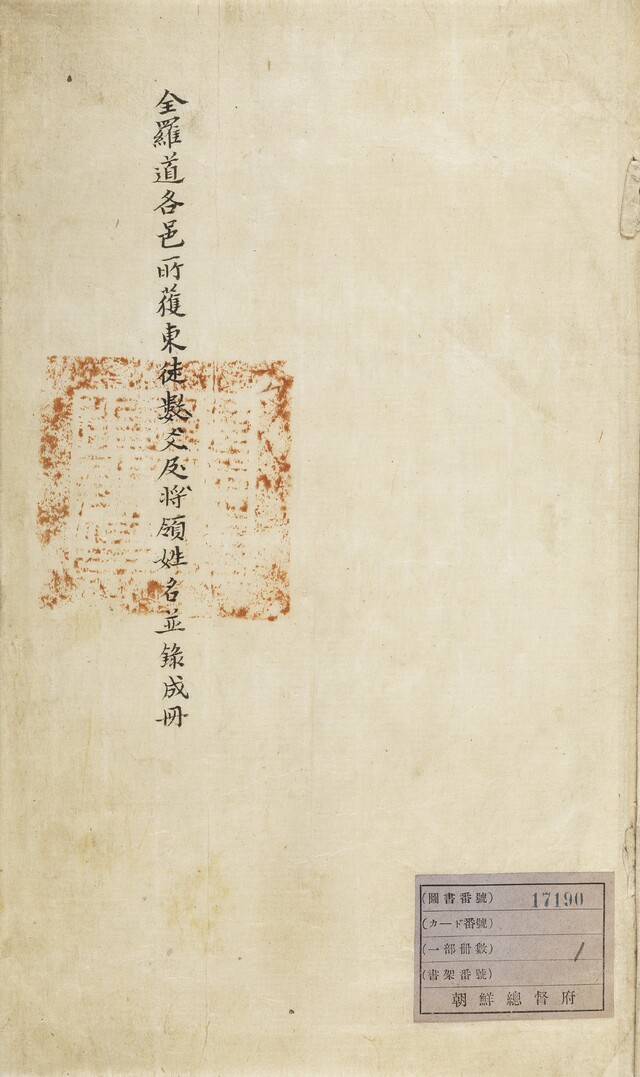 全羅道各邑所獲東徒數爻及將領姓名並錄成冊
(圖書番號) 17190
(カード番號)
(一部冊數) 1
(書架番號)
朝鮮總督府